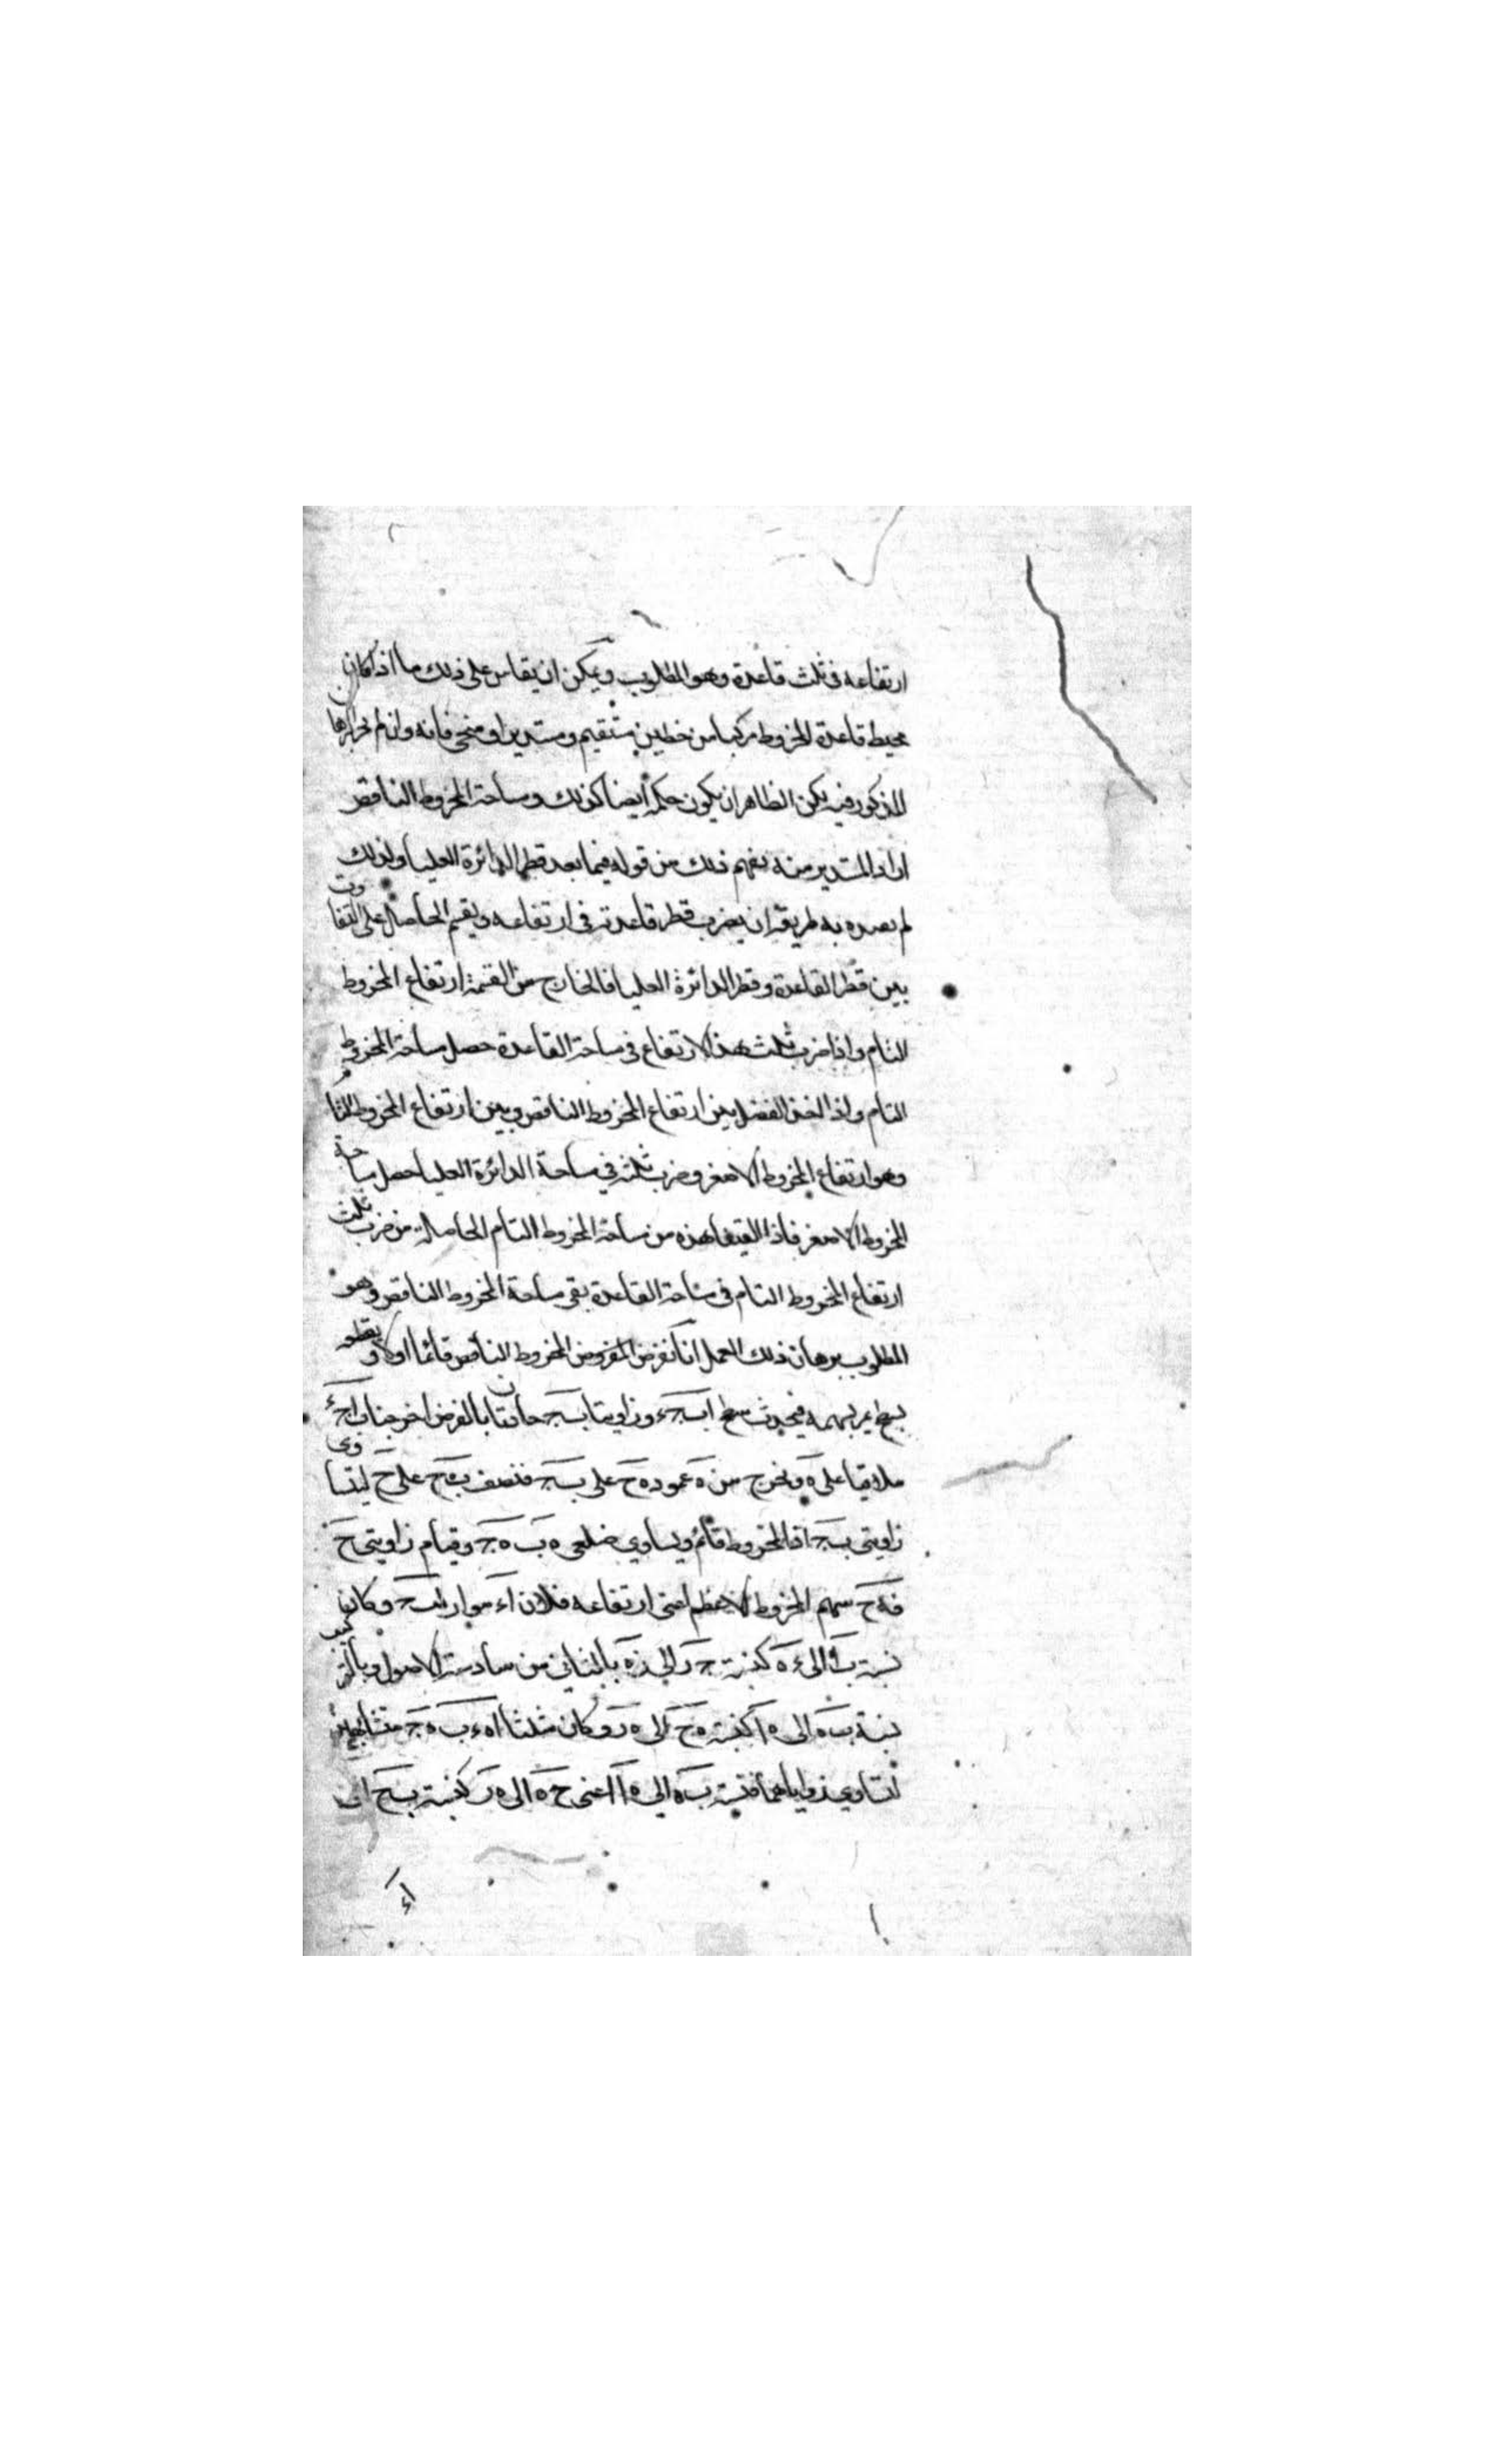 ارتفاعه فى ثلث قاعدة وهو المطلوب ويمكن ان يقاس على ذلك ما اذا كان
محيط قاعدة المخروط مركبا من خطين مستقيم ومستدير او منحنى فانه وان لم
المذكور فيه لكن الظاهر ان يكون حكمه ايضا كذلك ومساحة المخروط الناقص
اراد المستدير منه يفهم ذلك من قوله فيما بعد قطر الدائرة العليا ولذلك
لم به طريقه ان يضرب قطر قاعدته فى ارتفاعه ويقسم الحاصل على التفاوت
بين قطر القاعدة وقطر الدائرة العليا فالخارج من القسمة ارتفاع المخروط
التام واذا ضرب ثلث هذا الارتفاع فى مساحة القاعدة حصل مساحة المخروط
التام واذا اخذ الفضل بين ارتفاع المخروط الناقص وبين ارتفاع المخروط التام
وهو ارتفاع المخروط الاصغر وضرب ثلثه فى مساحة الدائرة العليا حصل مساحة
المخروط الاصغر فاذا القيت هذه من مساحة المخروط التام الحاصلة من ضرب ثلث
ارتفاع المخروط التام فى مساحة القاعدة بقى مساحة المخروط الناقص وهو
المطلوب برهان ذلك العمل انا نفرض المفروض المخروط الناقص قائما اولا ونقطعه
بسطح يمر بسهمه فيحدث سطح ا ب ج ء وزاويتا ب ج حادتان بالفرض اخرجنا ب ا ج ء
ملاقيا على ه ونخرج من ه عمود ه ح على ب ج فنصف ب ج على ح ليتساوى
زاويتى ب ج اذ المخروط قائم ويساوى ضلعى ه ب ه ج وقيام زاويتى ح
فه ح سهم المخروط الاعظم اعنى ارتفاعه فلان ا ء مواز لب ج وكان
نسبة ب ا الى ه كنسبة ح ر الى ر ه بالثانى من سادسة الاصول وبالتركيب
نسبة ب ه الى ه ا كنسبة ه ح الى ه ر وكان مثلثا ا ه ء ب ه ج متشابهين
لتساوى زواياهما فنسبة ب ه الى ه ا اعنى ح ه الى ه ر كنسبة ب ج الى
ا ء